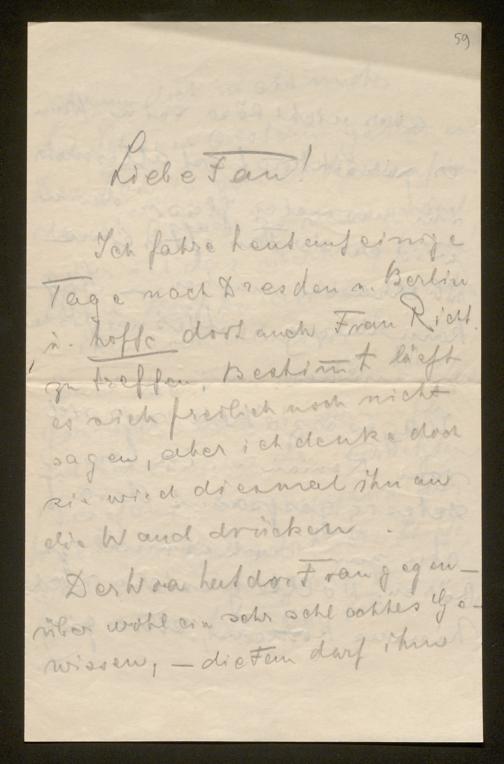 59
Liebe Fan!
Ich fahre heut auf einige
Tage nach Dresden u. Berlin
u. hoffe dort auch Frau Richt.
zu treffen. Bestimmt läßt
es sich freilich noch nicht
sagen, aber ich denke doch
sie wird diesmal ihn an
die Wand drücken.
Der hat der Frau gegen-
über wohl ein sehr schlechtes Ge-
wissen, — die Fan darf ihm